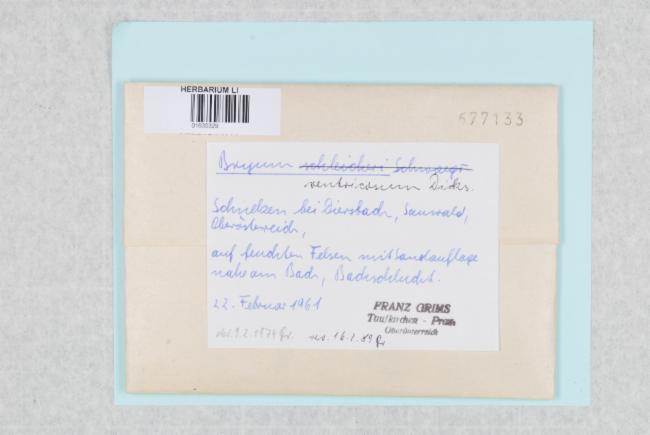 HERBARIUM LI
01630329
677133
Bryum schleicheri Schwaegr
ventricosum Dicks.
bei Diersbach, Sauwald,
Oberösterreich,
auf feuchten Felsen mit Sandauflage
nahe am Bach, Bachschlucht.
22. Februar 1961
FRANZ GRIMS
Taufkirchen - Pram
Oberösterreich
rev. 16.2.89 Gr.